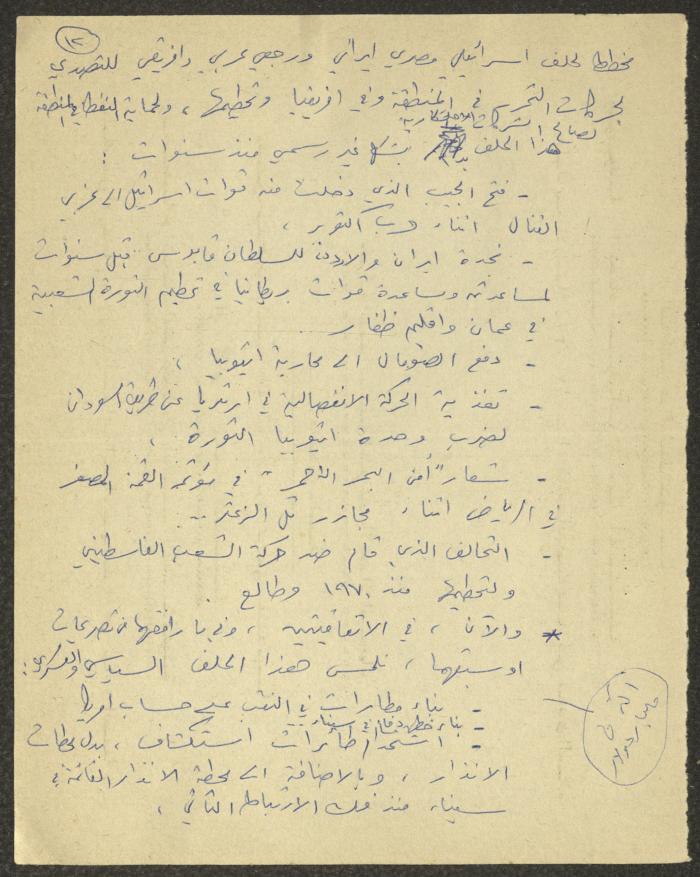 ١٢
مخططا لحلف اسرائيلي مصري ايراني ورجعي عربي وافريقي للتصدي
لحركات التحرر في المنطقة وفي افريقيا وتحطيمها ، ولحماية النفط في المنطقة
لصالح الشركات الاحتكارية
هذا الحلف بدأ بشكل غير رسمي منذ سنوات :
- فتح الجيب الذي دخلت منه قوات اسرائيل الى غربي
القنال اثناء حرب اكتوبر ،
- نجدة ايران والاردن للسلطان قابوس قبل سنوات
لمساعدته ومساعدة قوات بريطانيا في تحطيم الثورة الشعبية
في عمان واقليم ظفار ..
- دفع الصومال الى محاربة اثيوبيا ،
- تغذية الحركة الانفصالية في ارتريا عن طريق السودان
لضرب وحدة اثيوبيا الثورة ،
- شعار "أمن البحر الاحمر" في مؤتمر القمة المصغر
في الرياض اثناء مجازر تل الزعتر ..
- التحالف الذي قام ضد حركة الشعب الفلسطيني
ولتحطيمها منذ ١٩٧٠ وطالع .
* والآن ، في الاتفاقيتين ، وفي ما رافقهما من تصريحات
او سبقهما ، نلمس هذا الحلف السياسي والعسكري :
- بناء مطارات في النقب على حساب امريكا
- بناء خط دفاعي في سيناء
- استخدام طائرات استكشاف ، بدل محطات
الانذار ، وبالاضافة الى محطة الانذار القائمة في
سيناء منذ فك الارتباط الثاني ،